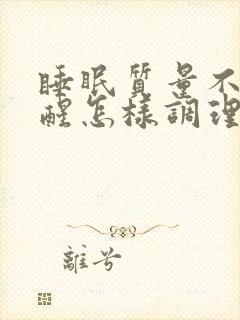 睡眠質量不
醒怎樣調理
離兮